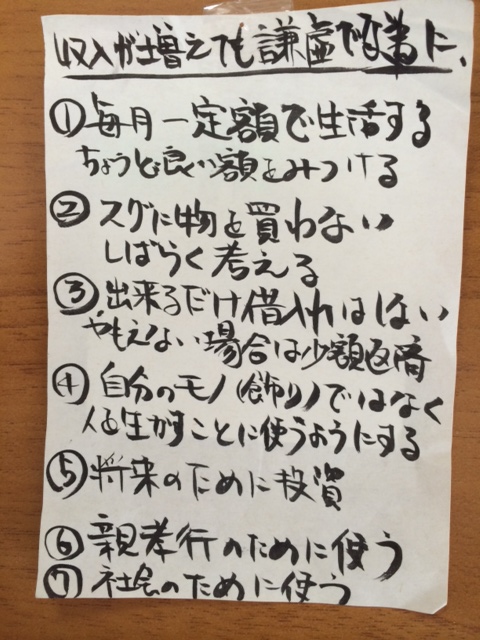 収入が増えても謙虚で地道に、
①毎月一定額で生活する
ちょうど良い額をみつける
②スグに物を買わない
しばらく考える
③出来るだけ借入れはしない
やもえない場合は少額返済
④自分のモノ(飾り)ではなく
人を生かすことに使うようにする
⑤将来のために投資
⑥親孝行のために使う
⑦社会のために使う